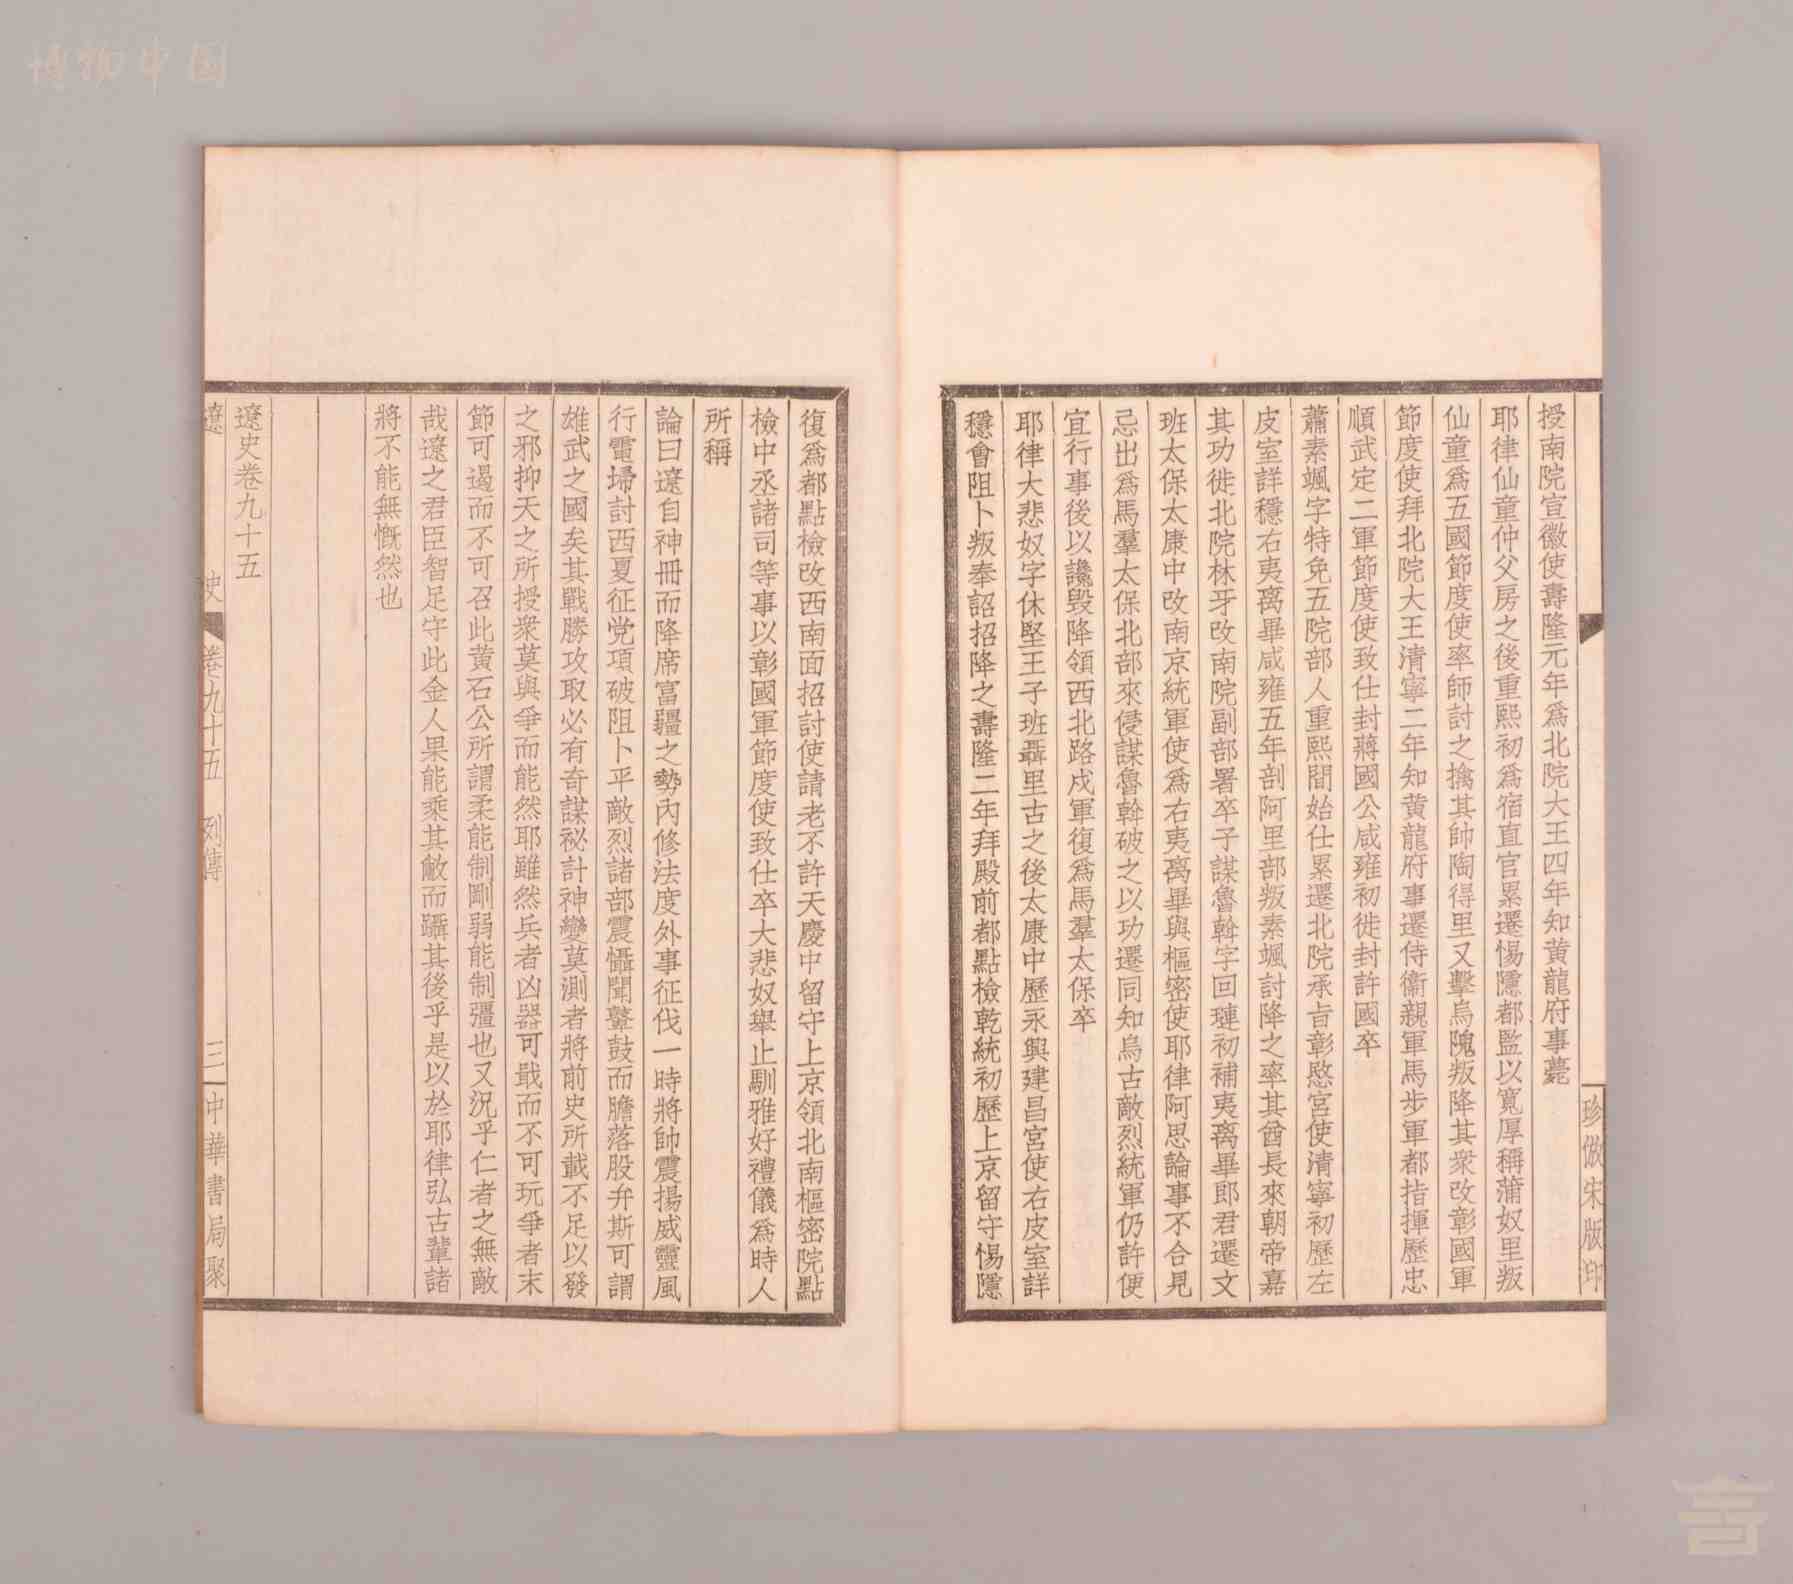 博物中国
珍倣宋版印
授南院宣徽使壽隆元年爲北院大王四年知黄龍府事薨
耶律仙童仲父房之後重熙初爲宿直官累遷惕隱都監以寬厚稱蒲奴里叛
仙童爲五國節度使率師討之擒其帥陶得里又擊烏隗叛降其衆改彰國軍
節度使拜北院大王清寧二年知黄龍府事遷侍衞親軍馬步軍都指揮歷忠
順武定二軍節度使致仕封蔣國公咸雍初徙封許國卒
蕭素颯字特免五院部人重熙間始仕累遷北院承旨彰愍宮使清寧初歷左
皮室詳穩右夷离畢咸雍五年剖阿里部叛素颯討降之率其酋長來朝帝嘉
其功徙北院林牙改南院副部署卒子謀魯斡字回璉初補夷离畢郎君遷文
班太保太康中改南京統軍使爲右夷离畢與樞密使耶律阿思論事不合見
忌出爲馬羣太保北部來侵謀魯斡破之以功還同知烏古敵烈統軍仍許便
宜行事後以讒毀降領西北路戍軍復爲馬羣太保卒
耶律大悲奴字休堅王子班聶里古之後太康中歷永興建昌宮使右皮室詳
穩會阻卜叛奉詔招降之壽隆二年拜殿前都點檢乾統初歷上京留守惕隱
復爲都點檢改西南面招討使請老不許天慶中留守上京領北南樞密院點
檢中丞諸司等事以彰國軍節度使致仕卒大悲奴舉止馴雅好禮儀爲時人
所稱
論曰遼自神冊而降席富疆之勢內修法度外事征伐一時將帥震揚威靈風
行電埽討西夏征党項破阻卜平敵烈諸部震懾聞鼙鼓而膽落股弁斯可謂
雄武之國矣其戰勝攻取必有奇謀祕計神變莫測者將前史所載不足以發
之邪抑天之所授衆莫與爭而能然耶雖然兵者凶器可戢而不可玩爭者末
節可遏而不可召此黄石公所謂柔能制剛弱能制彊也又況乎仁者之無敵
哉遼之君臣智足守此金人果能乘其敝而躡其後乎是以於耶律弘古輩諸
將不能無慨然也
遼史卷九十五
遼 史 卷九十五 列傳 三 中華書局聚